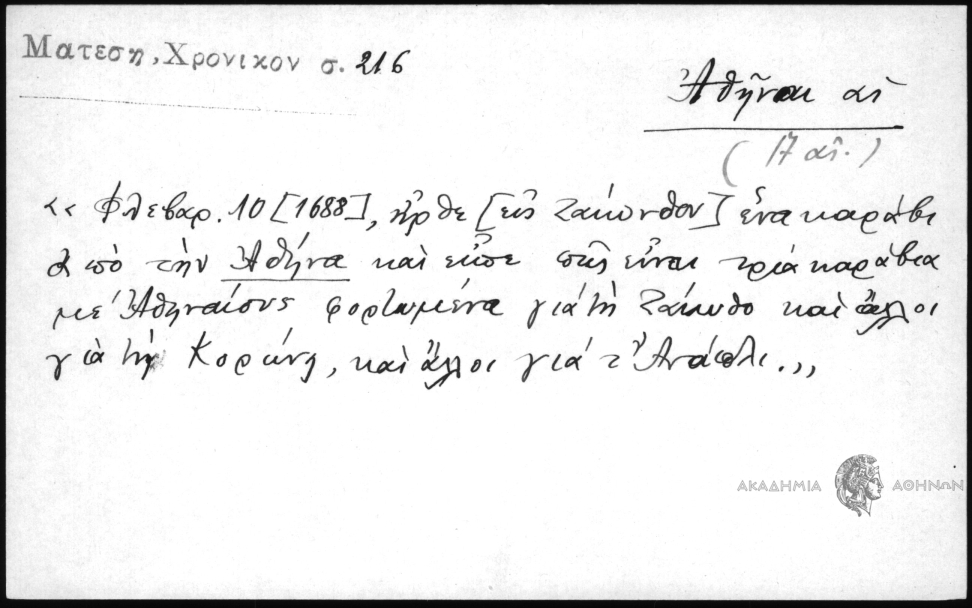 Ματεση, Χρονικον σ. 216
Ἀθῆναι αἱ
(17 αἰ.)
«Φλεβαρ. 10 [1688], ἦρθε [εἰς Ζάκυνθον] ἕνα καράβι
ἀπὸ τὴν Ἀθήνα καὶ εἶπε πῶς εἶναι τρία καράβια
μέ Ἀθηναίους φορτωμένα γιά τὴ Ζάκυθο καὶ ἄλλοι
γιὰ τὴ Κορώνη, καὶ ἄλλοι γιά τ' Ἀνάπλι.»
ΑΚΑΔΗΜΙΑ ΑΘΗΝΩΝ